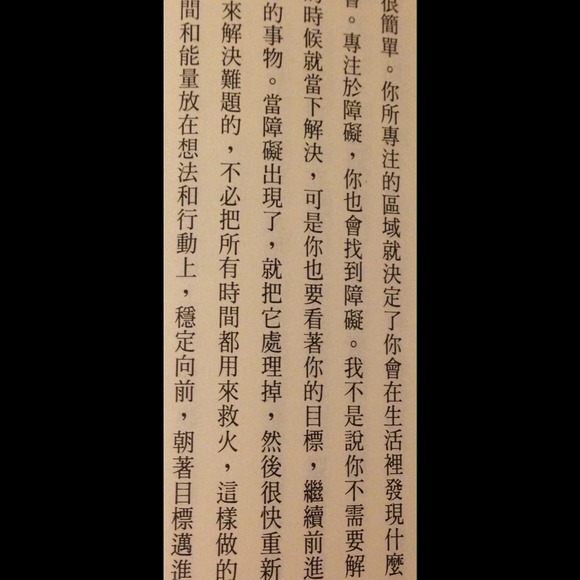 很簡單。你所專注的區域就決定了你會在生活裡發現什麼
會。專注於障礙，你也會找到障礙。我不是說你不需要解
時候就當下解決，可是你也要看著你的目標，繼續前進
的事物。當障礙出現了，就把它處理掉，然後很快重新
來解決難題的，不必把所有時間都用來救火，這樣做的
間和能量放在想法和行動上，穩定向前，朝著目標邁進